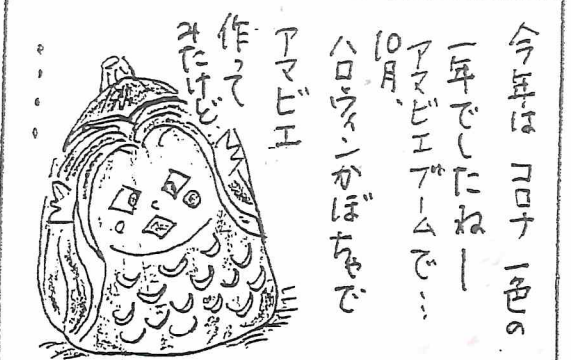 今年は コロナ 一色の
一年でしたねー
アマビエブームで…
10月、
ハロウィンかぼちゃで
アマビエ
作って
みたけど
....